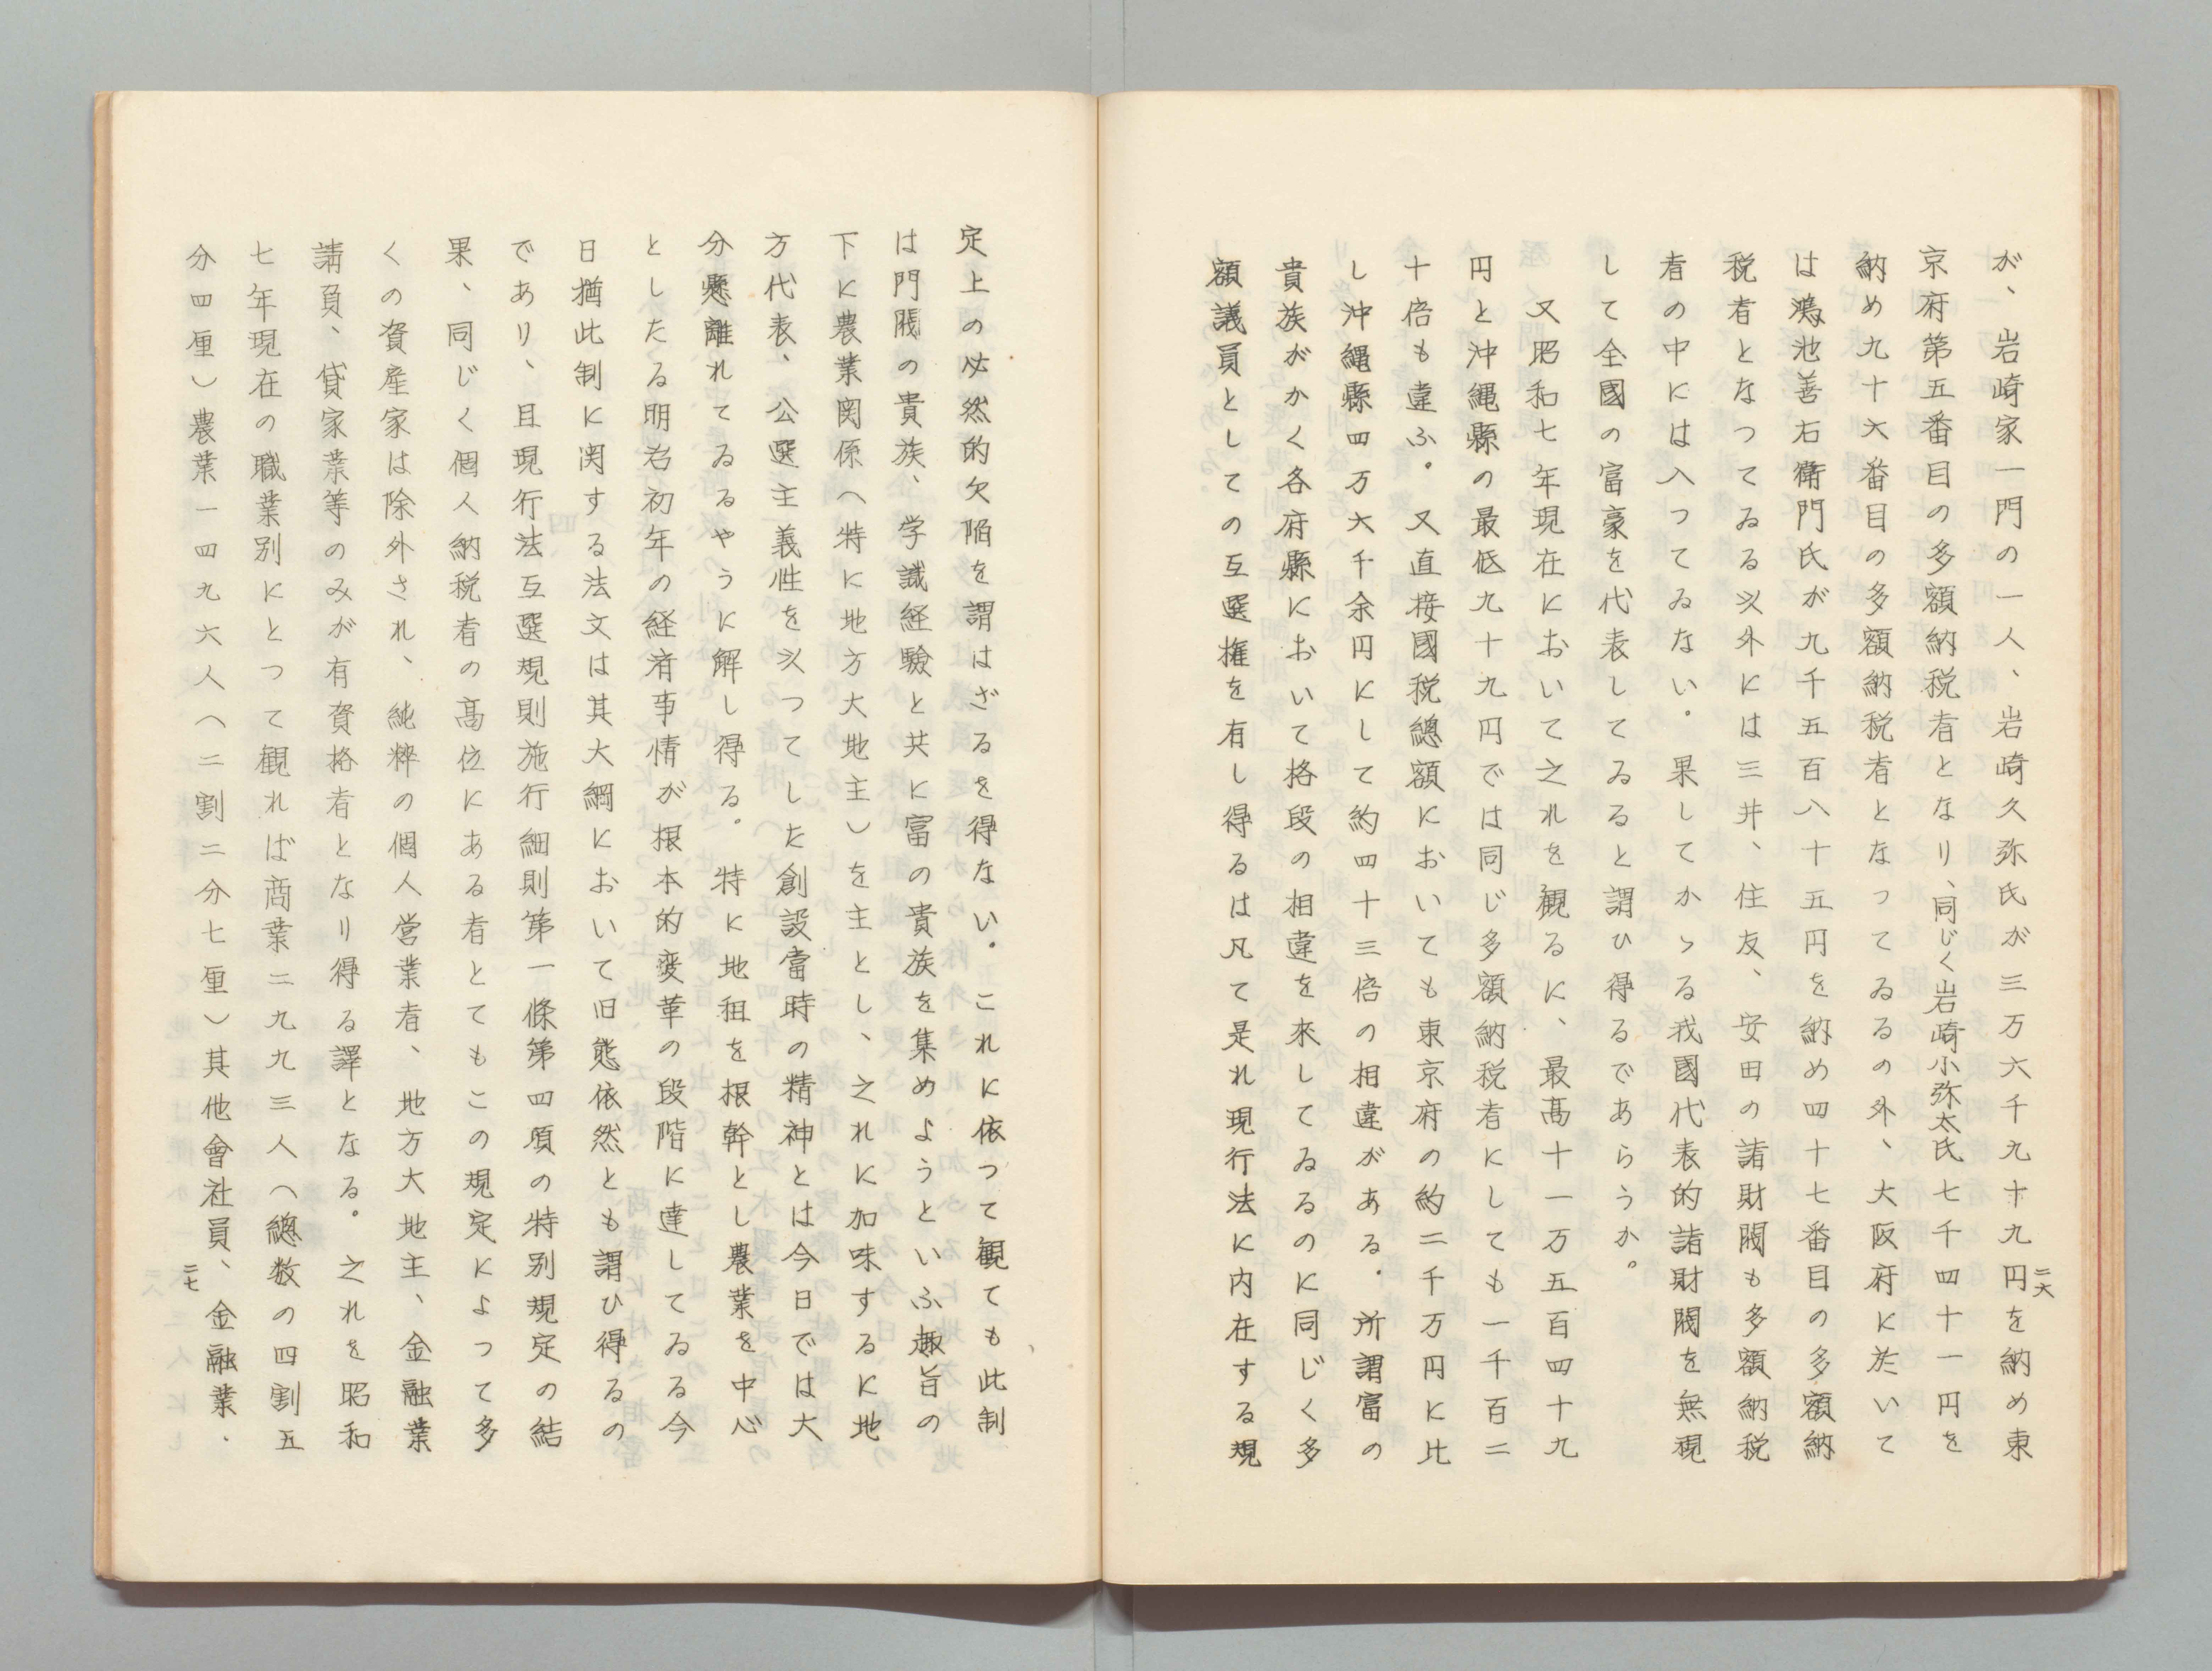 が、岩崎家一門の一人、岩崎久弥氏が三万六千九十九円を納め東
京府第五番目の多額納税者となり、同じく岩崎小弥太氏七千四十一円を
納め九十六番目の多額納税者となってゐるの外、大阪府に於いて
は鴻池善右衛門氏が九千五百八十五円を納め四十七番目の多額納
税者となつてゐる以外には三井、住友、安田の諸財閥も多額納税
者の中には入つてゐない。果してかゝる我國代表的諸財閥を無視
して全國の富豪を代表してゐると謂ひ得るであらうか。
又昭和七年現在において之れを観るに、最高十一万五百四十九
円と沖縄縣の最低九十九円では同じ多額納税者にしても一千百二
十倍も違ふ。又直接國税總額においても東京府の約二千万円に比
し沖縄縣四万六千余円にして約四十三倍の相違がある。所謂富の
貴族がかく各府縣において格段の相違を來してゐるのに同じく多
額議員としての互選権を有し得るは凡て是れ現行法に内在する規
二六
定上の必然的欠陥を謂はざるを得ない。これに依つて観ても此制
は門閥の貴族、学識経験と共に富の貴族を集めようといふ趣旨の
下に農業関係（特に地方大地主）を主とし、之れに加味するに地
方代表、公選主義性を以つてした創設當時の精神とは今日では大
分懸離れてゐるやうに解し得る。特に地租を根幹とし農業を中心
としたる明治初年の経済事情が根本的変革の段階に達してゐる今
日猶此制に関する法文は其大綱において旧態依然とも謂ひ得るの
であり、且現行法互選規則施行細則第一條第四項の特別規定の結
果、同じく個人納税者の高位にある者とてもこの規定によって多
くの資産家は除外され、純粋の個人営業者、地方大地主、金融業
請負、貸家業等のみが有資格者となり得る譯となる。之れを昭和
七年現在の職業別にとつて観れば商業二九九三人（總数の四割五
分四厘）農業一四九六人（二割二分七厘）其他會社員、金融業．
二七